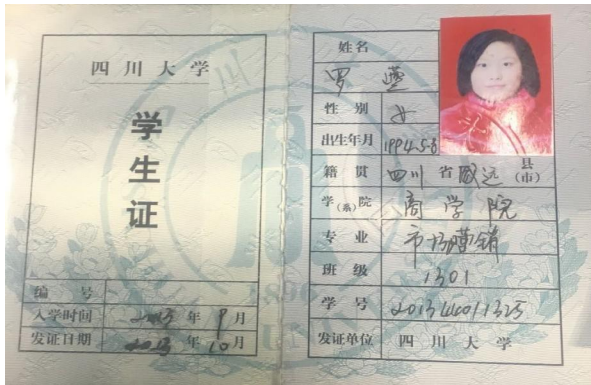 四川大学
学生证
编号
入学时间 2013年9月
发证日期 2013年10月
姓名
罗
性别 女
出生年月 1994.5.8
籍贯 四川省威远县(市)
学(系)院 商学院
专业 市场营销
班级 1301
学号
发证单位 四川大学